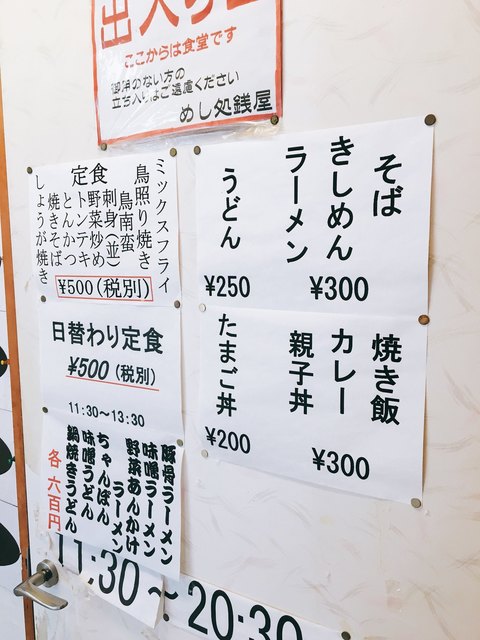 出入り口
ここからは食堂です
御用のない方の
立ち入りはご遠慮ください
めし処銭屋
そば
きしめん
ラーメン
¥300
うどん
¥250
焼き飯
カレー
親子丼
¥300
たまご丼
¥200
定食
ミックスフライ
鳥照り焼き
鳥南蛮
刺身(並)
野菜炒め
トンテキ
とんかつ
焼きそば
しょうが焼き
¥500(税別)
日替わり定食
¥500(税別)
11:30〜13:30
豚骨ラーメン
味噌ラーメン
野菜あんかけ
ラーメン
ちゃんぽん
味噌うどん
鍋焼きうどん
各六百円
11:30〜20:30